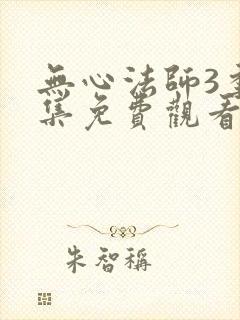 無心法師3全
集免費觀看
朱智稱